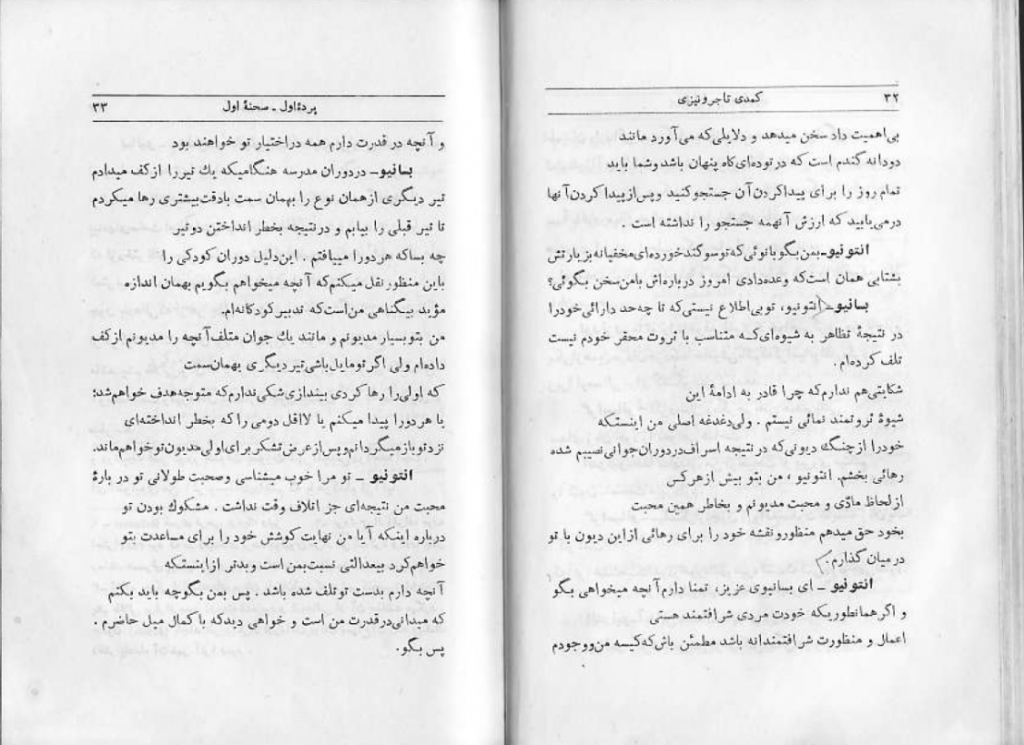 ۳۲
کمدی تاجر ونیزی
بی‌اهمیت داد سخن میدهد و دلایلی‌که می‌آورد مانند
دودانه گندم است که در توده‌ای‌کاه پنهان باشد وشما باید
تمام روز را برای پیداکردن‌آن جستجوکنید وپس‌از‌پیداکردن‌آنها
درمی‌یابید که ارزش آنهمه جستجو را نداشته است .
انتونیو-بمن‌بگو‌بانوئی‌که‌توسوگند‌خورده‌ای‌مخفیانه‌بزیارتش
بشتابی همان است‌که وعده‌دادی امروز درباره‌اش بامن‌سخن بگوئی؟
بسانیو-انتونیو، توبی‌اطلاع نیستی‌که تا چه‌حد دارائی خودرا
در نتیجهٔ تظاهر به شیوه‌ای‌که متناسب با ثروت محقر خودم نیست
تلف کرده‌ام .
شکایتی‌هم ندارم‌که چرا قادر به ادامهٔ این
شیوهٔ ثروتمند نمائی نیستم . ولی‌دغدغه اصلی من اینستکه
خودرا ازچنگ دیونی‌که درنتیجه اسراف‌دردوران‌جوانی‌نصیبم شده
رهائی بخشم. انتونیو ، من بتو بیش ازهرکس
ازلحاظ مادّی و محبت مدیونم و بخاطر همین محبت
بخود حق‌میدهم منظورونقشه خود را برای رهائی ازاین دیون با تو
درمیان گذارم.
انتونیو - ای بسانیوی عزیز، تمنا دارم‌آنچه میخواهی بگو
و اگرهمانطوریکه خودت مردی شرافتمند هستی
اعمال و منظورت شرافتمندانه باشد مطمئن باش‌که‌کیسه من‌ووجودم
پردهٔ‌اول - صحنهٔ اول
۳۳
و آنچه در قدرت دارم همه دراختیار تو خواهند بود
بسانیو- دردوران مدرسه هنگامیکه یك تیررا ازکف میدادم
تیر دیگری ازهمان نوع را بهمان سمت بادقت‌بیشتری رها میکردم
تا تیر قبلی را بیابم و درنتیجه بخطر انداختن دوتیر،
چه بساکه هردورا مییافتم . این‌دلیل دوران کودکی را
باین منظور نقل میکنم‌که آنچه میخواهم بگویم بهمان اندازه
مؤید بیگناهی من‌است‌که تدبیرکودکانه‌ام.
من بتوبسیار مدیونم و مانند یك جوان متلف‌آنچه را مدیونم ازکف
داده‌ام ولی اگرتومایل‌باشی‌تیر دیگری بهمان‌سمت
که اولی‌را رهاکردی بیندازی‌شکی‌ندارم‌که متوجه‌هدف خواهم‌شد؛
یا هردورا پیدا میکنم یا لااقل دومی را که بخطر انداخته‌ای
نزدتوبازمیگردانم‌وپس‌ازعرض‌تشکر‌برای‌اولی‌مدیون‌توخواهم‌ماند.
انتونیو - تو مرا خوب میشناسی وصحبت طولانی تو در بارهٔ
محبت من نتیجه‌ای جز اتلاف وقت نداشت . مشکوك بودن تو
درباره اینکه آیا من نهایت کوشش خود را برای مساعدت بتو
خواهم‌کرد بیعدالتی نسبت‌بمن است وبدتر ازاینستکه
آنچه دارم بدست توتلف شده باشد . پس بمن بگوچه باید بکنم
که میدانی‌درقدرت من است و خواهی دیدکه باکمال میل حاضرم .
پس بگو.